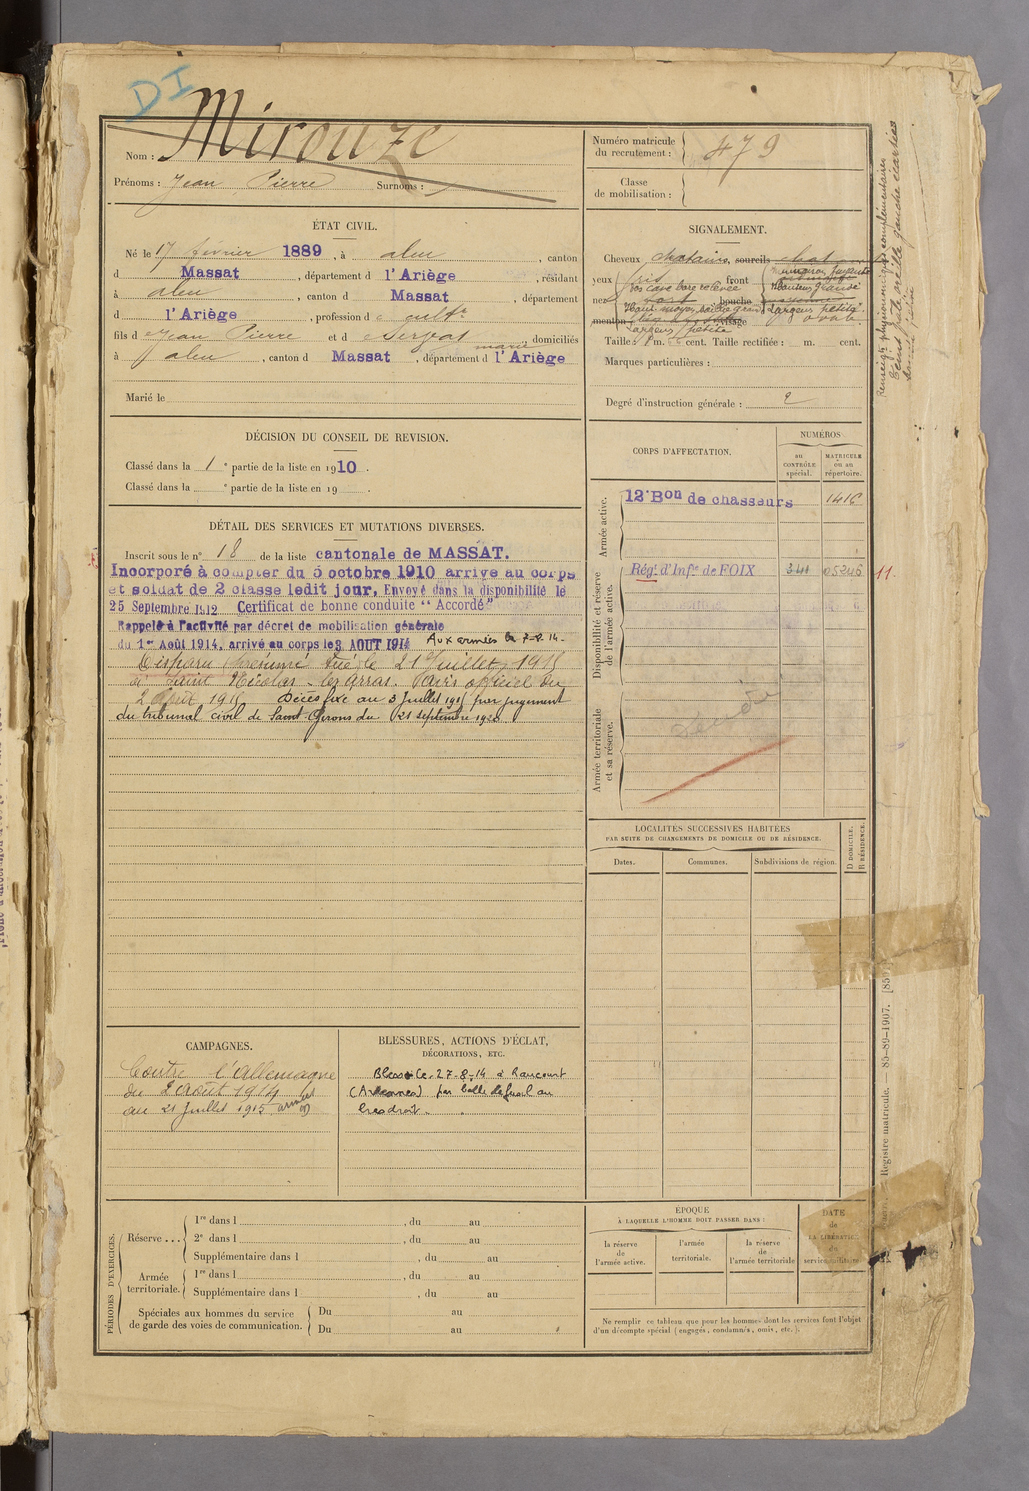 DI
Nom : Mirouze
Prénoms : Jean Pierre Surnoms :
Numéro matricule du recrutement : 479
Classe de mobilisation :
ÉTAT CIVIL.
Né le 17 février 1889, à aleu, canton
d Massat, département d l'Ariège, résidant
à aleu, canton d Massat, département
d l'Ariège, profession d cultr
fils d Jean Pierre et d Servat, domiciliés
à aleu, canton d Massat, département d l'Ariège
Marié le
SIGNALEMENT.
Cheveux chatains, sourcils chat
yeux gris front
nez bouche
menton visage ovale
Taille 1 m. cent. Taille rectifiée : m. cent.
Marques particulières :
Degré d'instruction générale : 2
Renseigts physionomiques complémentaires
DÉCISION DU CONSEIL DE REVISION.
Classé dans la 1e partie de la liste en 1910.
Classé dans la e partie de la liste en 19 .
DÉTAIL DES SERVICES ET MUTATIONS DIVERSES.
Inscrit sous le n° 18 de la liste cantonale de MASSAT.
Incorporé à compter du 5 octobre 1910 arrivé au corps
et soldat de 2 classe ledit jour, Envoyé dans la disponibilité le
25 Septembre 1912 Certificat de bonne conduite "Accordé"
Rappelé à l'activité par décret de mobilisation générale
du 1er Août 1914, arrivé au corps le 3 AOUT 1914 Aux armées le 7-8-14-
Disparu présumé tué le 21 Juillet 1915
à Saint Nicolas-les-Arras. Avis officiel du
2 Août 1915 Décès fixé au 3 Juillet 1915 par jugement
du tribunal civil de Saint-Girons du 21 septembre 1920
CORPS D'AFFECTATION.
NUMÉROS
au CONTRÔLE spécial.
MATRICULE ou au répertoire.
Armée active.
12e Bon de chasseurs 1416
Disponibilité et réserve de l'armée active.
Régt d'Infie de FOIX 341 05246 11
Armée territoriale et sa réserve.
LOCALITÉS SUCCESSIVES HABITÉES
PAR SUITE DE CHANGEMENTS DE DOMICILE OU DE RÉSIDENCE.
Dates. Communes. Subdivisions de région. D DOMICILE. R RÉSIDENCE.
CAMPAGNES.
Contre l'Allemagne
du 2 Août 1914
au 21 Juillet 1915 armées
BLESSURES, ACTIONS D'ÉCLAT,
DÉCORATIONS, ETC.
Blessé le 27-8-14 à Raucourt
(Ardennes) par balle de fusil au
bras droit.
PÉRIODES D'EXERCICES.
Réserve ...
1re dans l , du au
2e dans l , du au
Supplémentaire dans l , du au
Armée territoriale.
1re dans l , du au
Supplémentaire dans l , du au
Spéciales aux hommes du service
de garde des voies de communication.
Du au
Du au
ÉPOQUE
À LAQUELLE L'HOMME DOIT PASSER DANS :
la réserve de l'armée active.
l'armée territoriale.
la réserve de l'armée territoriale
DATE de LA LIBÉRATION du service militaire
Ne remplir ce tableau que pour les hommes dont les services font l'objet
d'un décompte spécial (engagés, condamnés, omis, etc.).
Registre matricule. — 85-89-1907.